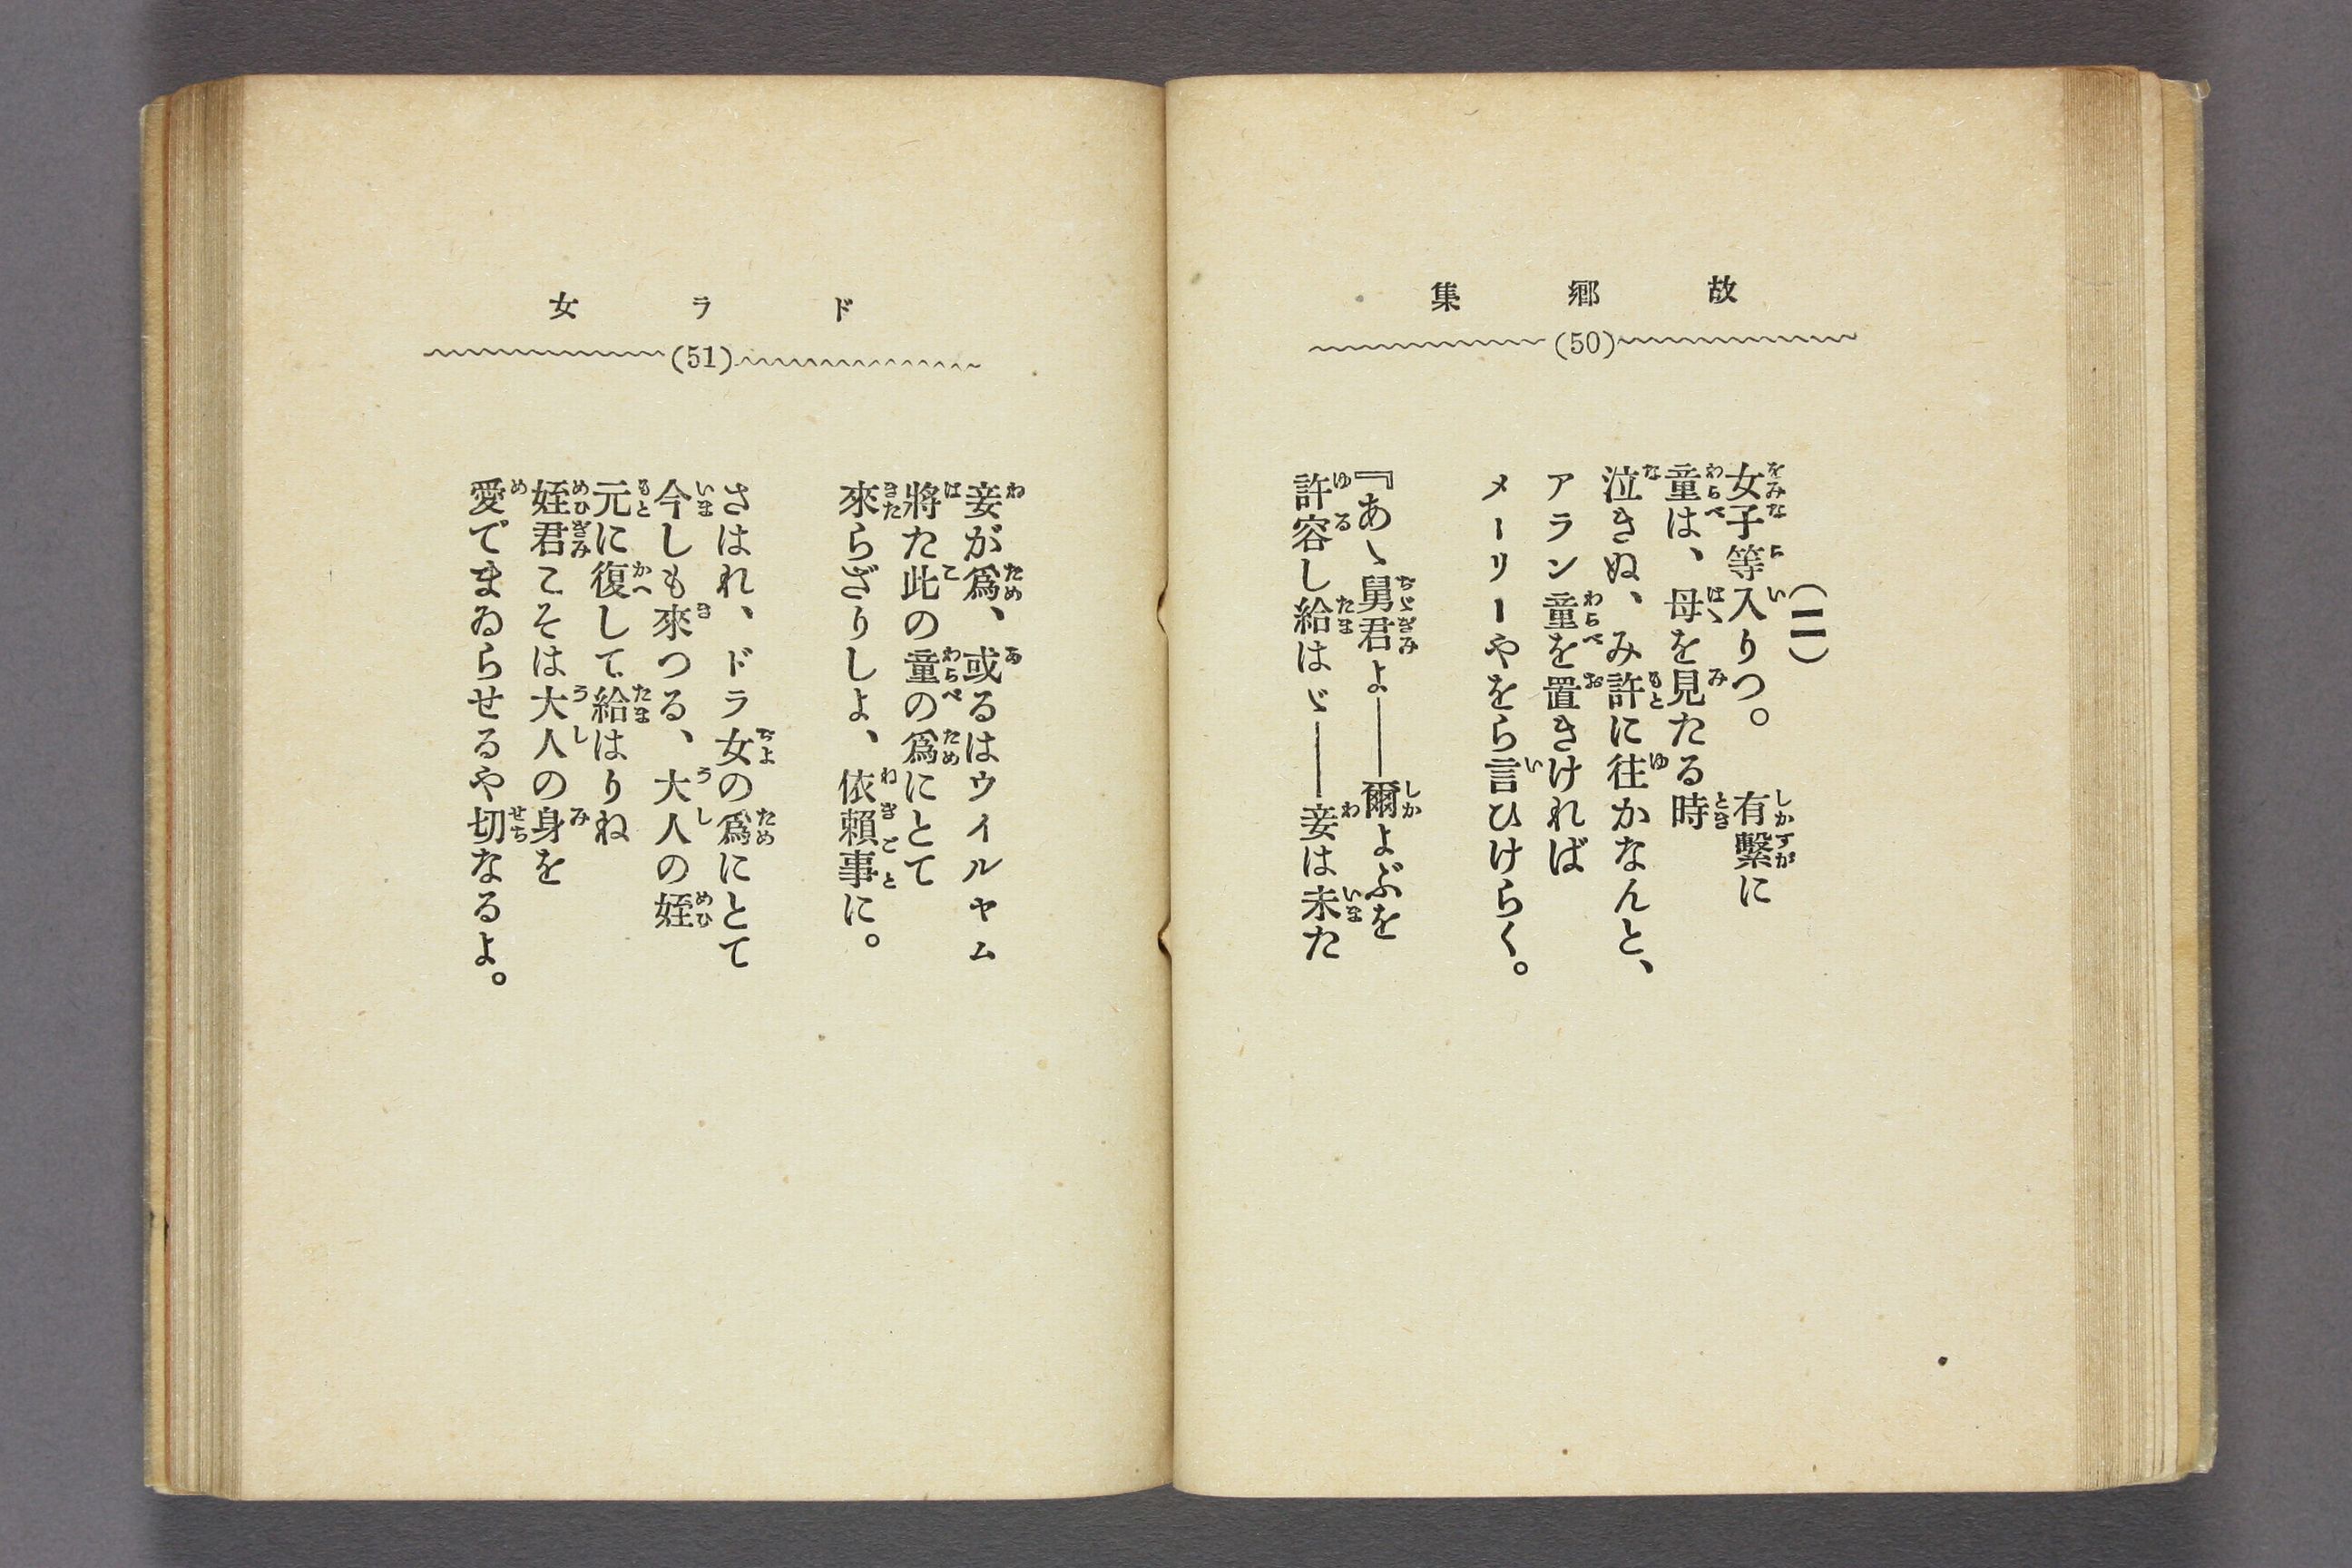 故郷集
(50)
(二)
女子等入りつ。　有繫に
童は、母を見たる時
泣きぬ、み許に往かなんと、
アラン童を置きければ
メーリーやをら言ひけらく。
『あゝ舅君よ――爾よぶを
許容し給はゞ――妾は未た
ドラ女
(51)
妾が爲、或るはウイルヤム
將た此の童の爲にとて
來らざりしよ、依賴事に。
さはれ、ドラ女の爲にとて
今しも來つる、大人の姪
元に復して給はりね
姪君こそは大人の身を
愛でまゐらせるや切なるよ。